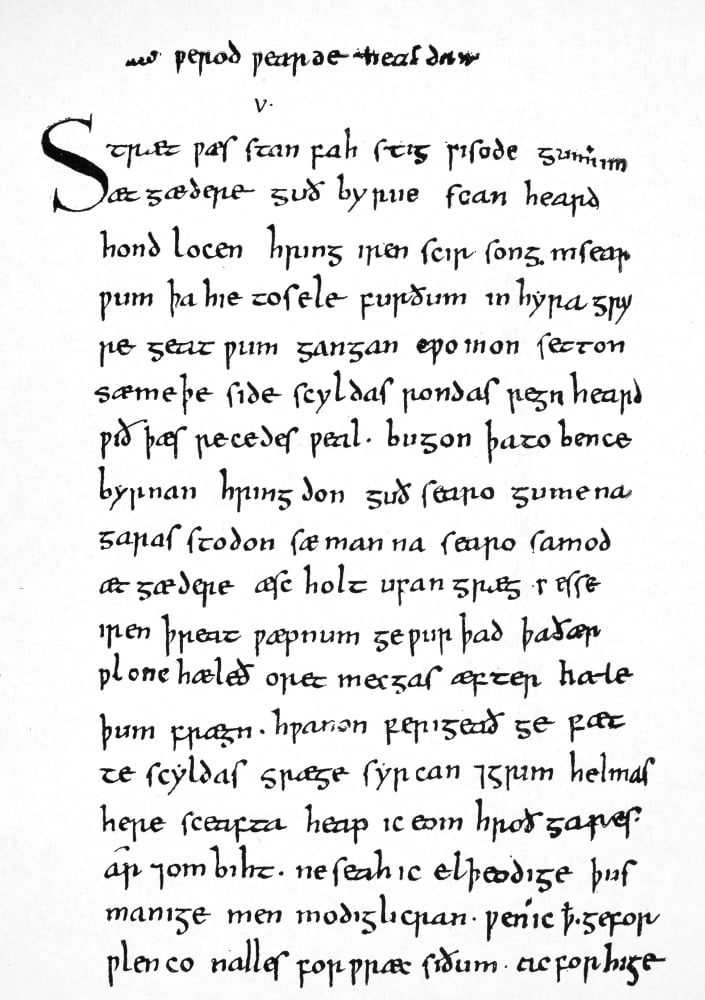 ƿerod ƿearde heal dan
v.
Stræt ƿæs stan fah stig ƿisode gumum
æt gædere guð byrne scan heard
hond locen hring iren scir song insear
ƿum þa hie tosele furðum in hyra gry
re geat ƿum gangan cƿomon setton
sæmeþe side scyldas rondas regn heard
ƿið þæs recedes ƿeal. bugon þato bence
byrnan hring don guð searo gumena
garas stodon sæ man na searo samod
æt gædere æsc holt ufan græg ƿ esse
iren þreat ƿæpnum geƿur þad þaðær
ƿlonc hæleð oret mecgas æfter hæle
þum frægn. hƿanon ferigeað ge fæt
te scyldas græge syrcan ⁊grim helmas
here sceafta heap ic eom hroðgares.
ar ⁊ombiht. ne seah ic elþeodige þus
manige men modiglicran. ƿen ic ꝥ. gefor
ƿlenco nalles for ƿræc siðum. ac forhige